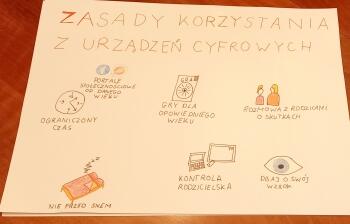 ZASADY KORZYSTANIA
Z URZĄDZEŃ CYFROWYCH
PORTALE
SPOŁECZNOŚCIOWE
OD DANEGO
WIEKU
GRY DLA
OPOWIEDNIEGO
WIEKU
ROZMOWA Z RODZICAMI
O SKUTKACH
OGRANICZONY
CZAS
KONTROLA
RODZICIELSKA
DBAJ O SWÓJ
WZROK
NIE PRZED SNEM